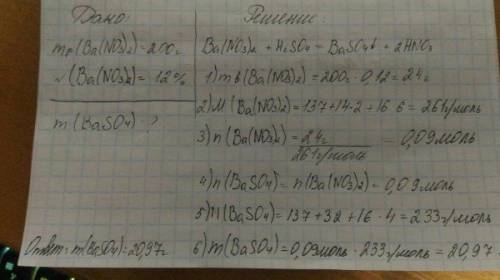 Дано:
mр(Ba(NO3)2)=200г
w(Ba(NO3)2)= 12%
m(BaSO4) - ?
Решение:
Ba(NO3)2 + H2SO4 = BaSO4↓ + 2HNO3
1) mв(Ba(NO3)2) = 200г · 0,12 = 24г
2) M(Ba(NO3)2) = 137+14·2+16·6 = 261г/моль
3) n(Ba(NO3)2) = 24г / 261г/моль = 0,09моль
4) n(BaSO4) = n(Ba(NO3)2) = 0,09моль
5) M(BaSO4) = 137+32+16·4 = 233г/моль
6) m(BaSO4) = 0,09моль · 233г/моль = 20,97
Ответ: m(BaSO4) = 20,97г